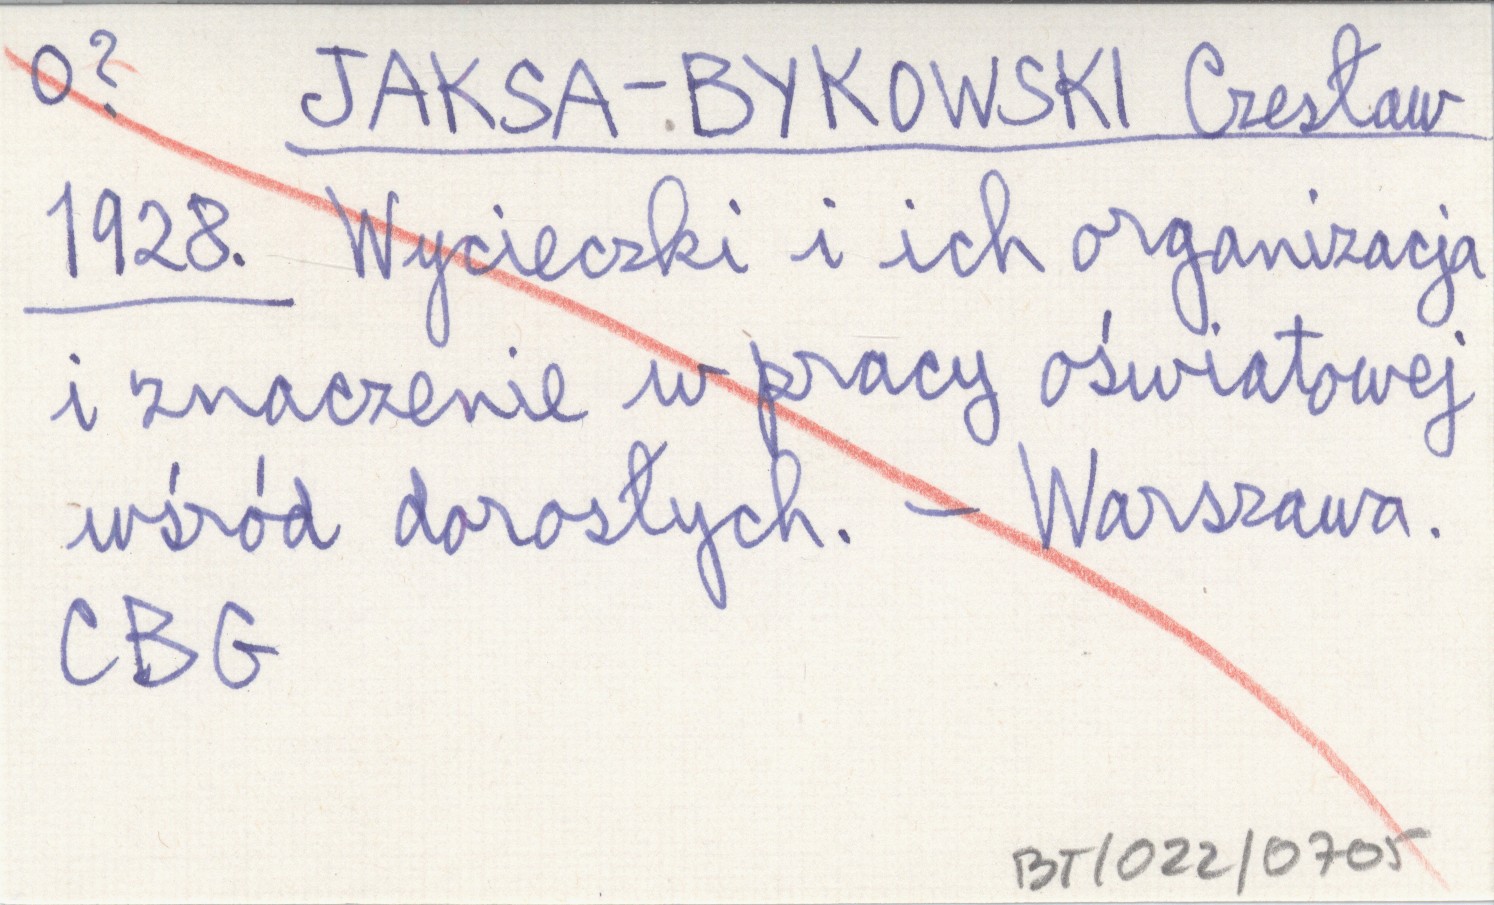 O? JAKSA-BYKOWSKI Czesław
1928. Wycieczki i ich organizacja
i znaczenie w pracy oświatowej
wśród dorosłych. – Warszawa.
CBG
BT/022/0705